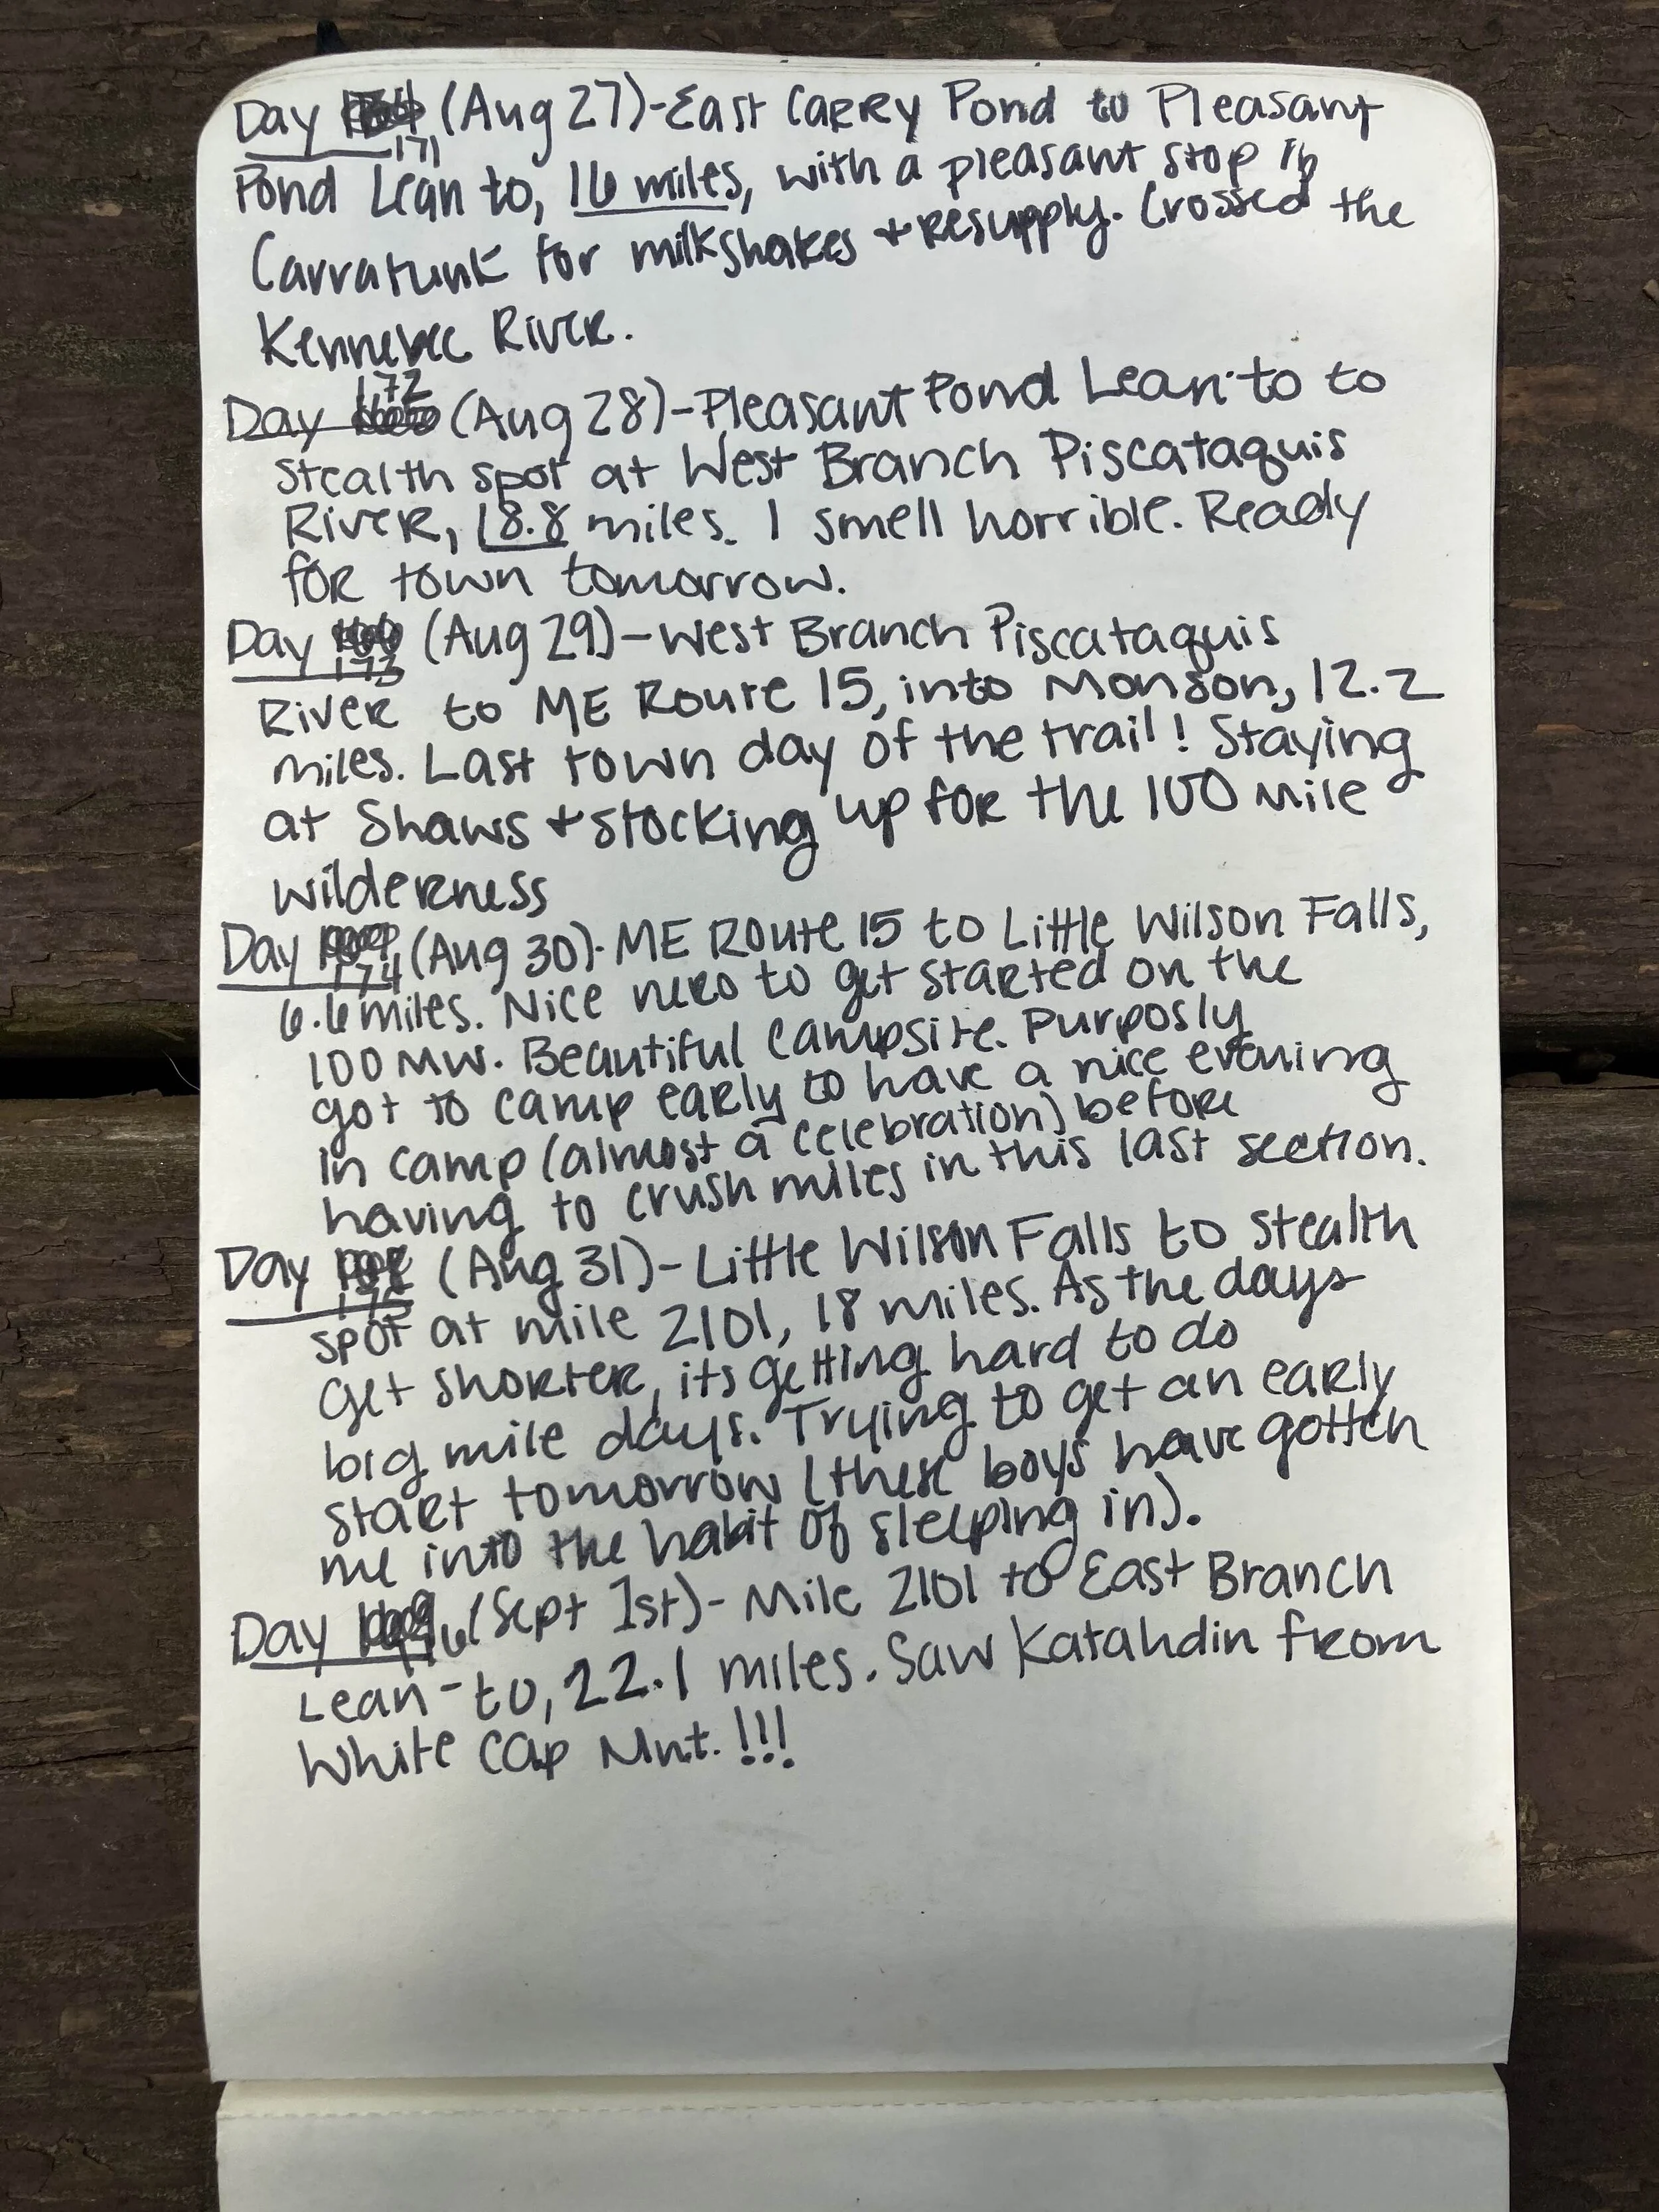 Day 171 (Aug 27)-East Carry Pond to Pleasant
Pond Lean to, 16 miles, with a pleasant stop in
Carratunk for milkshakes + resupply. Crossed the
Kennebec River.
Day 172 (Aug 28)-Pleasant Pond Lean-to to
stealth spot at West Branch Piscataquis
River, 18.8 miles. I smell horrible. Ready
for town tomorrow.
Day 173 (Aug 29)-West Branch Piscataquis
River to ME Route 15, into Monson, 12.2
miles. Last town day of the trail! Staying
at Shaws + stocking up for the 100 Mile
Wilderness
Day 174 (Aug 30)-ME Route 15 to Little Wilson Falls,
6.6 miles. Nice nero to get started on the
100 MW. Beautiful campsite. Purposly
got to camp early to have a nice evening
in camp (almost a celebration) before
having to crush miles in this last section.
Day 175 (Aug 31)-Little Wilson Falls to stealth
spot at mile 2101, 18 miles. As the days
get shorter, its getting hard to do
big mile days. Trying to get an early
start tomorrow (these boys have gotten
me into the habit of sleeping in).
Day 176 (Sept 1st)-Mile 2101 to East Branch
Lean-to, 22.1 miles. Saw Katahdin from
White Cap Mnt. !!!